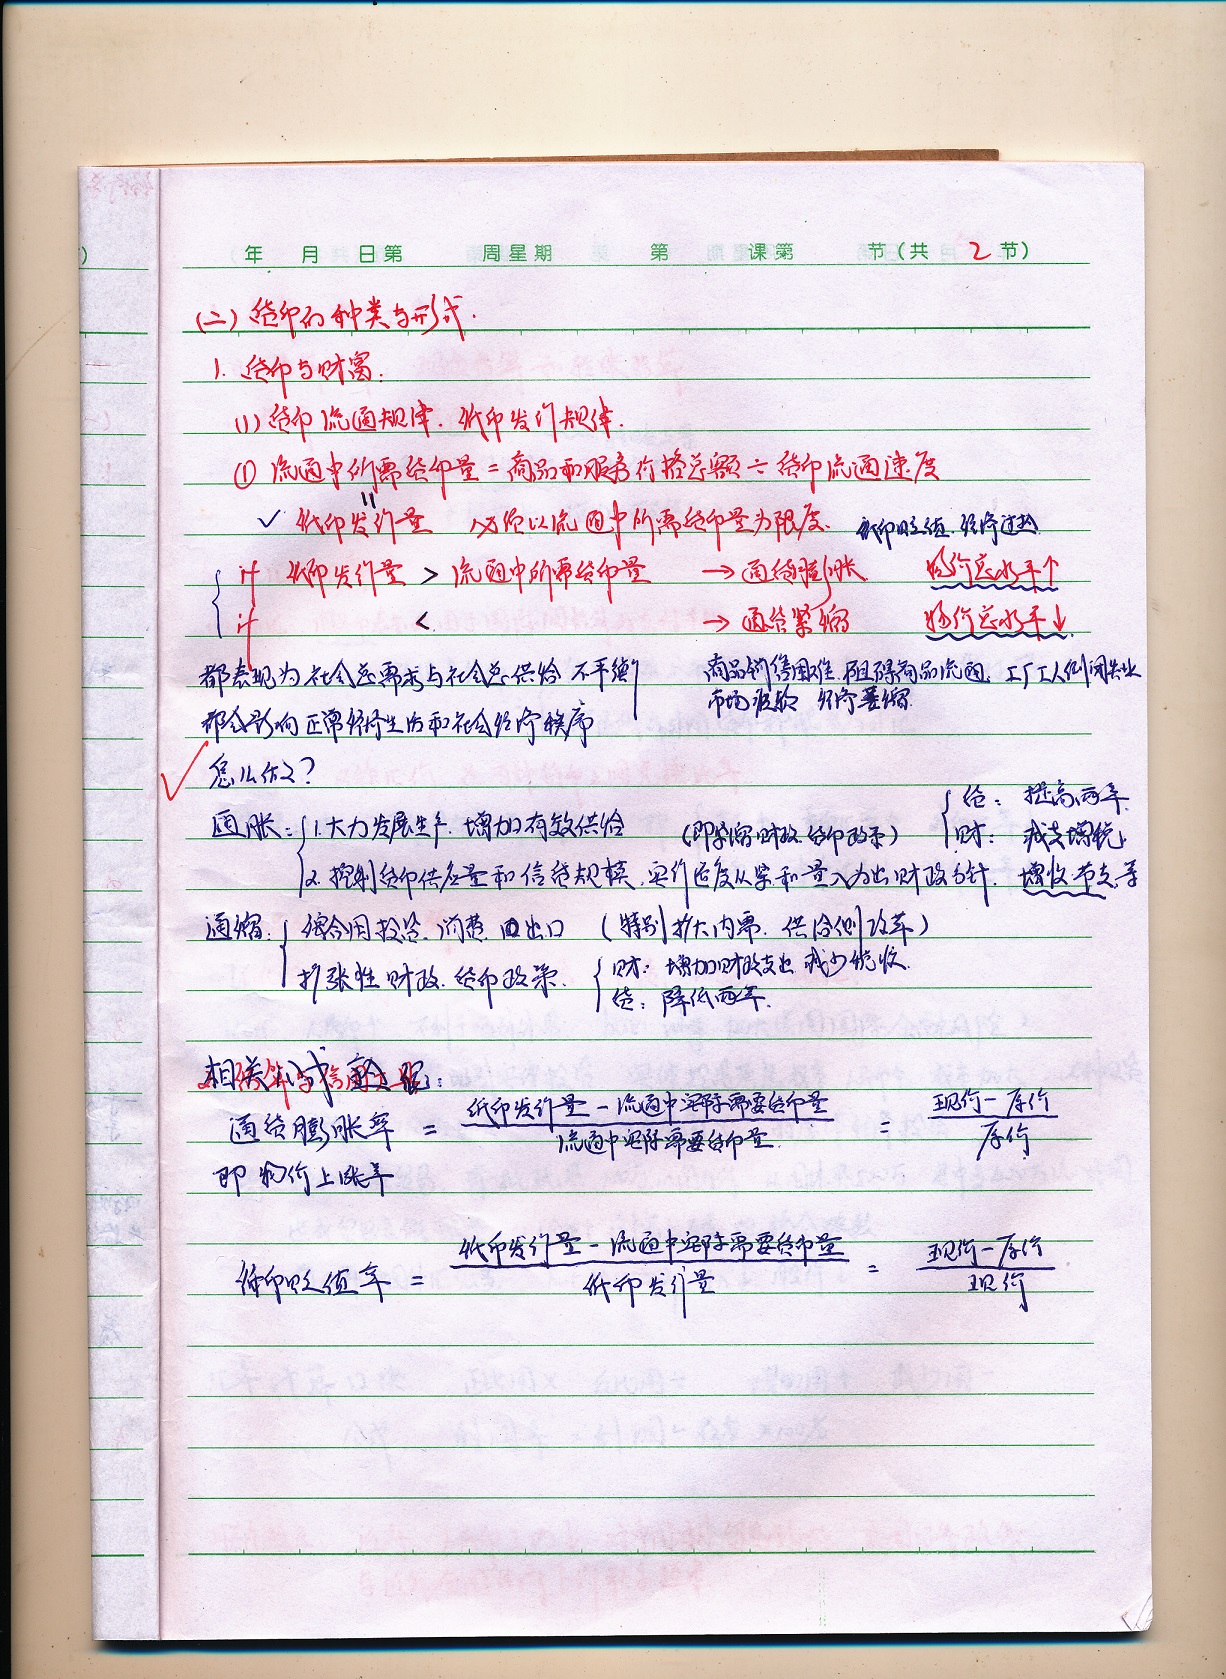 年 月 日第 周星期 第 课第 节(共 2 节)
(二)货币的种类与形式.
1. 货币与财富:
(1) 货币流通规律. 纸币发行规律.
① 流通中所需货币量 = 商品和服务价格总额 ÷ 货币流通速度
||
✓ 纸币发行量 必须以流通中所需货币量为限度. 纸币贬值 经济过热
if 纸币发行量 > 流通中所需货币量 → 通货膨胀 物价总水平↑
if < → 通货紧缩 物价总水平↓
都表现为社会总需求与社会总供给不平衡 商品销售困难. 阻碍商品流通. 工厂工人倒闭失业
都会影响正常经济生活和社会经济秩序 市场疲软 经济萎缩.
✓ 怎么做?
通胀: 1.大力发展生产. 增加有效供给 (即紧缩财政.货币政策) 货: 提高两率.
财: 减支增税
2.控制货币供应量和信贷规模. 实行适度从紧和量入为出财政方针. 增收节支等
通缩: 综合用投资. 消费 出口 (特别扩大内需. 供给侧改革)
扩张性财政.货币政策. 财: 增加财政支出 减少税收.
货: 降低两率.
相关公式:
通货膨胀率 = 纸币发行量 - 流通中实际需要货币量 / 流通中实际需要货币量 = 现价 - 原价 / 原价
即物价上涨率
纸币贬值率 = 纸币发行量 - 流通中实际需要货币量 / 纸币发行量 = 现价 - 原价 / 现价